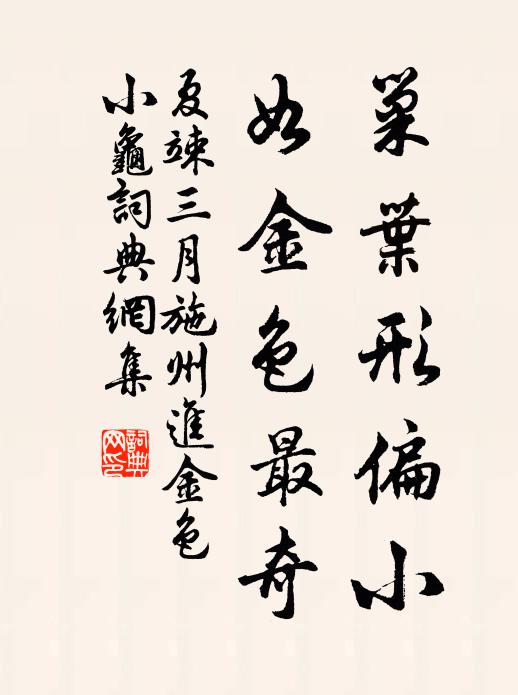 巢葉形偏小
如金色最奇
夏竦三月施州進金色
小龜詞典網集
詞典
网印